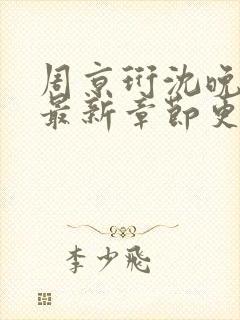 周京衍沈晚
最新章节更
李少飛